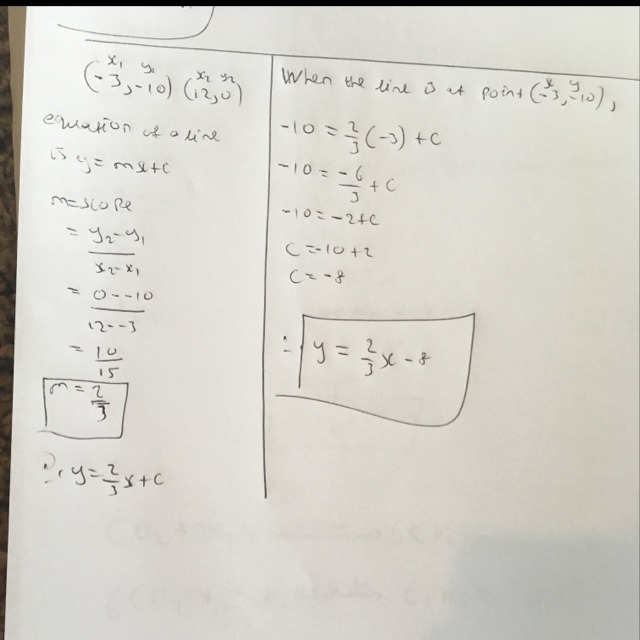 x₁ y₁ x₂ y₂
(-3,-10) (12,0)
equation of a line
is y=mx+c
m=slope
= y₂-y₁
x₂-x₁
= 0--10
12--3
= 10
15
m = 2
3
∴ y=2/3x+c
When the line is at point (-3,-10),
x y
-10 = 2/3(-3)+c
-10 = -6/3+c
-10=-2+c
c=-10+2
c=-8
∴ y = 2/3x-8